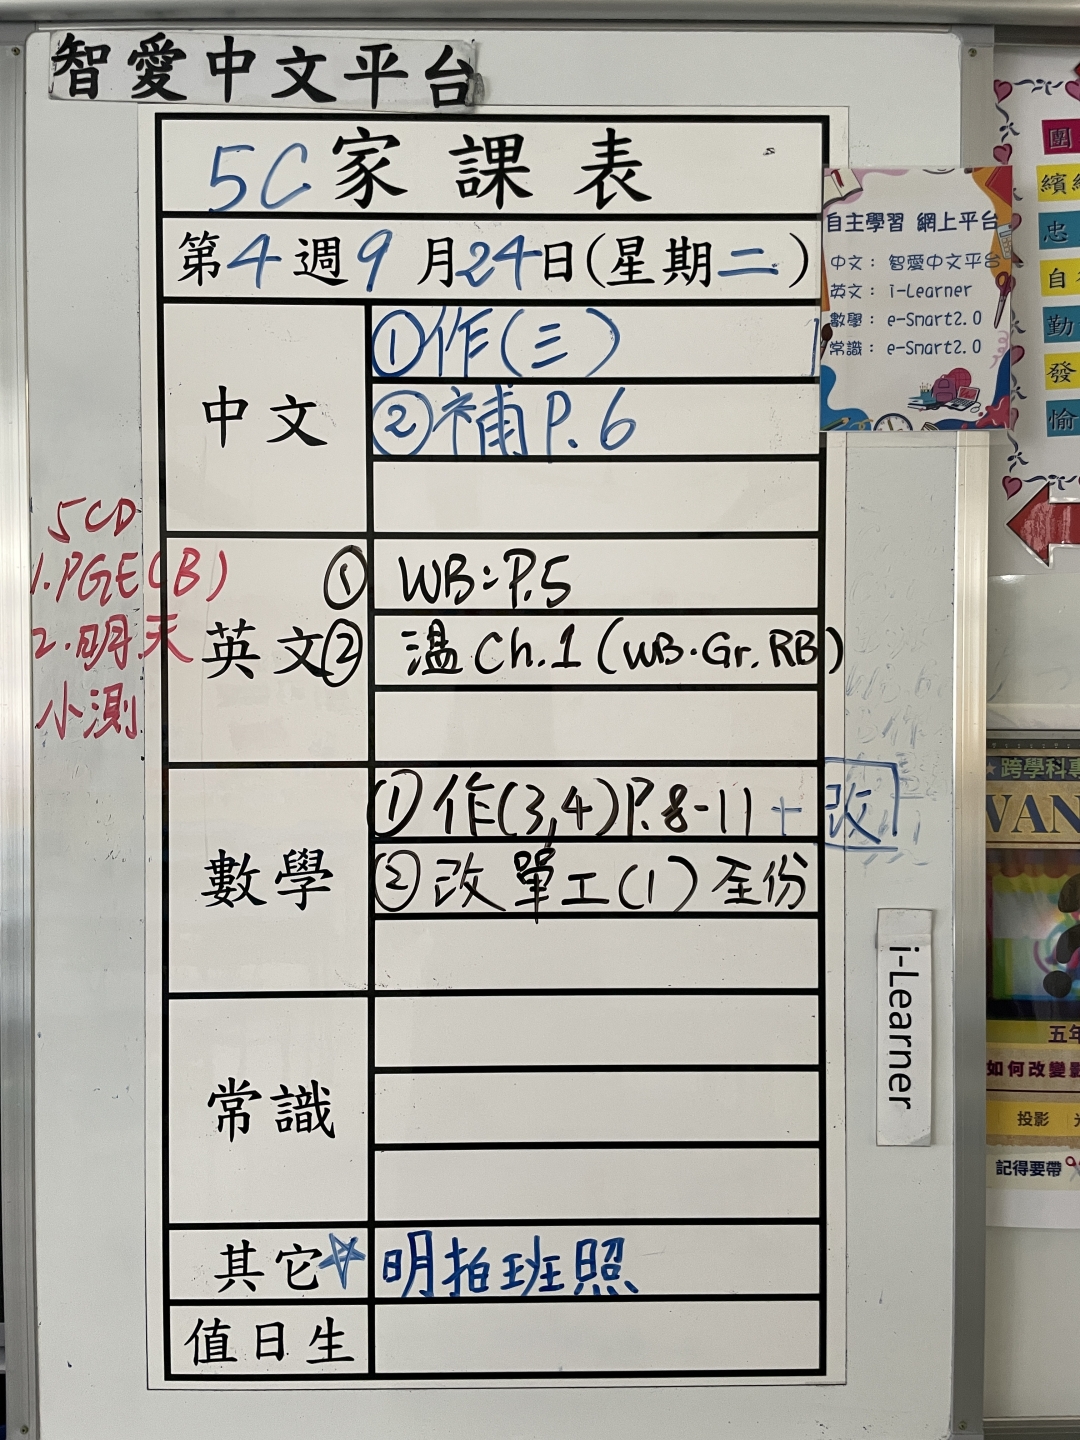 智愛中文平台
5C家課表
第4週9月24日(星期二)
中文
①作(三)
②補P.6
英文
① WB:P.5
② 溫Ch.1(WB.Gr.RB)
5CD
1.PGE(B)
2.明天
小測
數學
①作(3,4)P.8-11+改
②改單工(1)全份
常識
其它
明拍班照
值日生
自主學習 網上平台
中文：智愛中文平台
英文：i-Learner
數學：e-Smart2.0
常識：e-Smart2.0
i-Learner
團
繽
忠
自
勤
發
愉
跨學科專
WAN
五年
如何改變影
投影
記得要帶